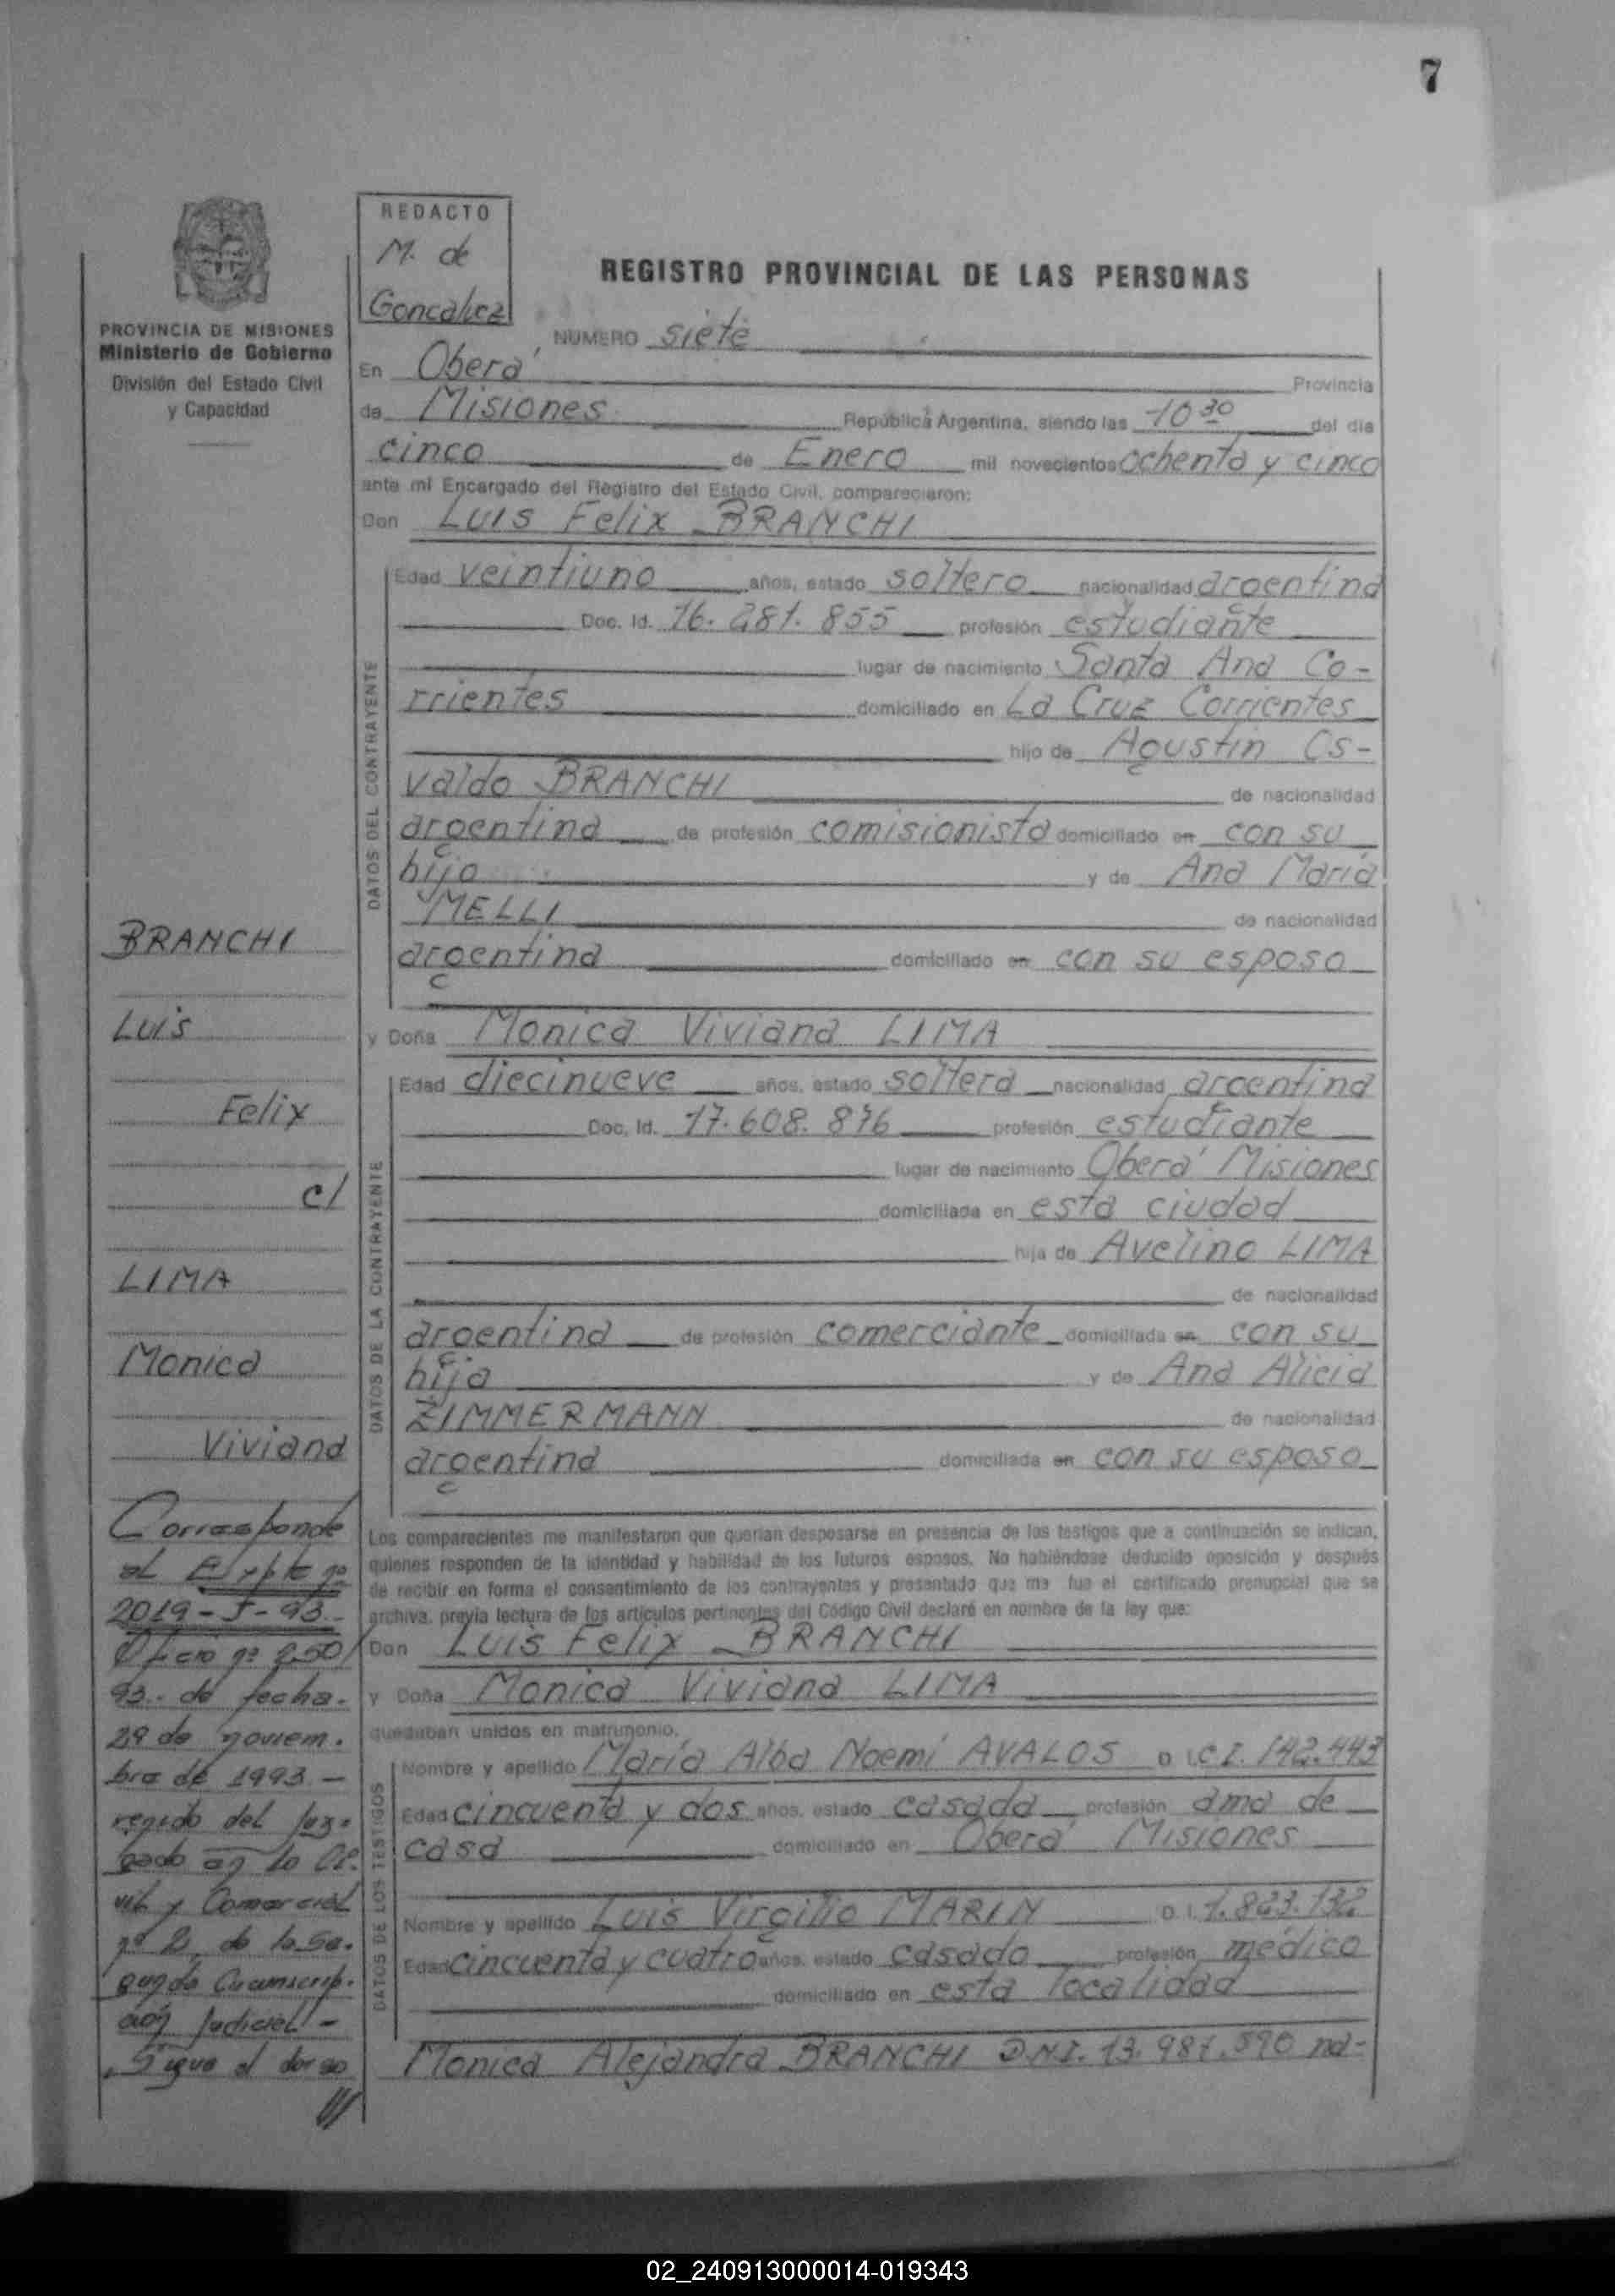 7
REDACTO
M. de
Goncalvez
PROVINCIA DE MISIONES
Ministerio de Gobierno
División del Estado Civil
y Capacidad
REGISTRO PROVINCIAL DE LAS PERSONAS
NUMERO siete
En Oberá Provincia
de Misiones República Argentina, siendo las 10 30 del día
cinco de Enero mil novecientos ochenta y cinco
ante mi Encargado del Registro del Estado Civil, comparecieron:
Don Luis Felix BRANCHI
DATOS DEL CONTRAYENTE
Edad veintiuno años, estado soltero nacionalidad argentina
Doc. Id. 16.281.855 profesión estudiante
lugar de nacimiento Santa Ana Co-
rrientes domiciliado en La Cruz Corrientes
hijo de Agustin Os-
valdo BRANCHI de nacionalidad
argentina de profesión comisionista domiciliado en con su
hijo y de Ana María
MELLI de nacionalidad
argentina domiciliado en con su esposo
y Doña Monica Viviana LIMA
DATOS DE LA CONTRAYENTE
Edad diecinueve años, estado soltera nacionalidad argentina
Doc. Id. 17.608.876 profesión estudiante
lugar de nacimiento Oberá Misiones
domiciliada en esta ciudad
hija de Avelino LIMA
de nacionalidad
argentina de profesión comerciante domiciliada en con su
hija y de Ana Alicia
ZIMMERMANN de nacionalidad
argentina domiciliada en con su esposo
Los comparecientes me manifestaron que querían desposarse en presencia de los testigos que a continuación se indican,
quienes responden de la identidad y habilidad de los futuros esposos. No habiéndose deducido oposición y después
de recibir en forma el consentimiento de los contrayentes y presentado que me fue el certificado prenupcial que se
archiva, previa lectura de los artículos pertinentes del Código Civil declaré en nombre de la ley que:
Don Luis Felix BRANCHI
y Doña Monica Viviana LIMA
quedaban unidos en matrimonio.
DATOS DE LOS TESTIGOS
Nombre y apellido María Alba Noemí AVALOS D I.C.I. 142.443
Edad cincuenta y dos años, estado casada profesión ama de
casa domiciliado en Oberá Misiones
Nombre y apellido Luis Virgilio MARIN D.I. 1.823.132
Edad cincuenta y cuatro años, estado casado profesión médico
domiciliado en esta localidad
Monica Alejandra BRANCHI D.N.I. 13.987.590 na-
BRANCHI
Luis
Felix
c/
LIMA
Monica
Viviana
Corresponde
al Expte nº
2019-J-93.-
Oficio nº 250/
93.- de fecha
29 de noviem.
bre de 1993 -
del Juz-
gado en lo Ci-
vil y Comercial
nº 2, de la Se-
gunda Circunscrip-
ción Judicial -
Sigue al dorso
///
02_240913000014-019343